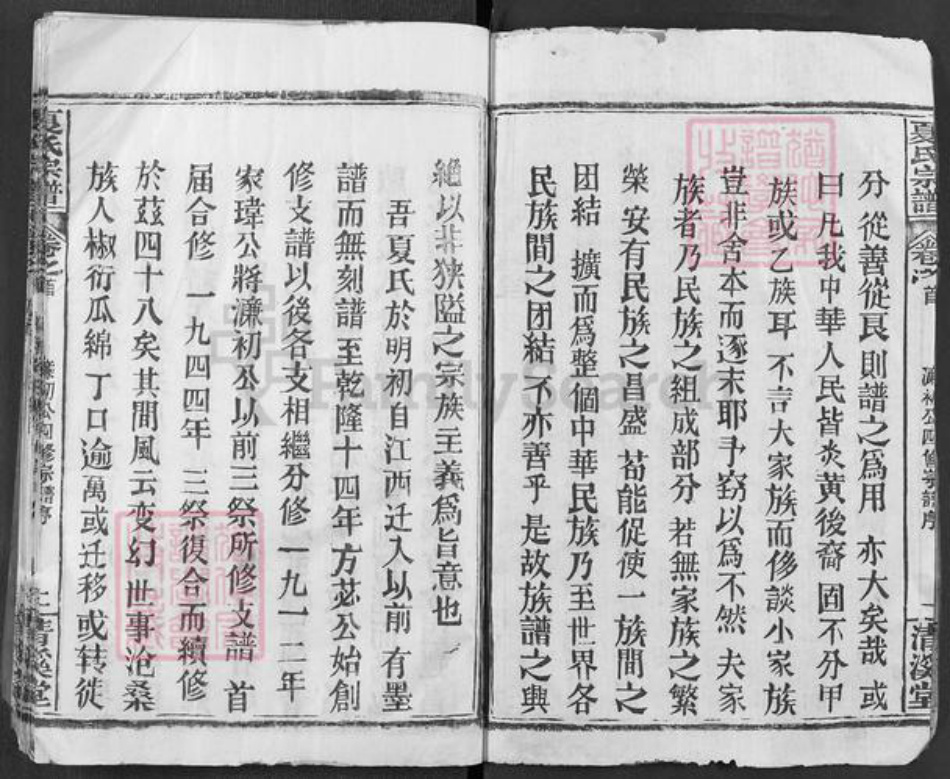 夏氏宗譜
卷之首
濂初公四修宗譜序
一
清溪堂
分從善從良則譜之爲用 亦大矣哉 或
曰凡我中華人民皆炎黄後裔 固不分甲
族或乙族耳 不言大家族而侈談小家族
豈非舍本而逐末耶予窃以爲不然 夫家
族者乃民族之組成部分 若無家族之繁
榮 安有民族之昌盛 苟能促使一族間之
团結 擴而爲整個中華民族乃至世界各
民族間之团結 不亦善乎 是故族譜之興
絶以非狭隘之宗族主義爲旨意也
吾夏氏於明初自江西迁入以前 有墨
譜而無刻譜至乾隆十四年方苾公始創
修支譜以後各支相繼分修 一九一二年
家瑋公將濂初公以前三祭所修支譜 首
届合修 一九四四年 三祭復合而續修
於茲四十八矣其間風云变幻 世事沧桑
族人椒衍瓜綿 丁口逾萬或迁移 或转徙
夏氏宗譜
卷之首
濂初公四修宗譜序
清溪堂
FamilySearch